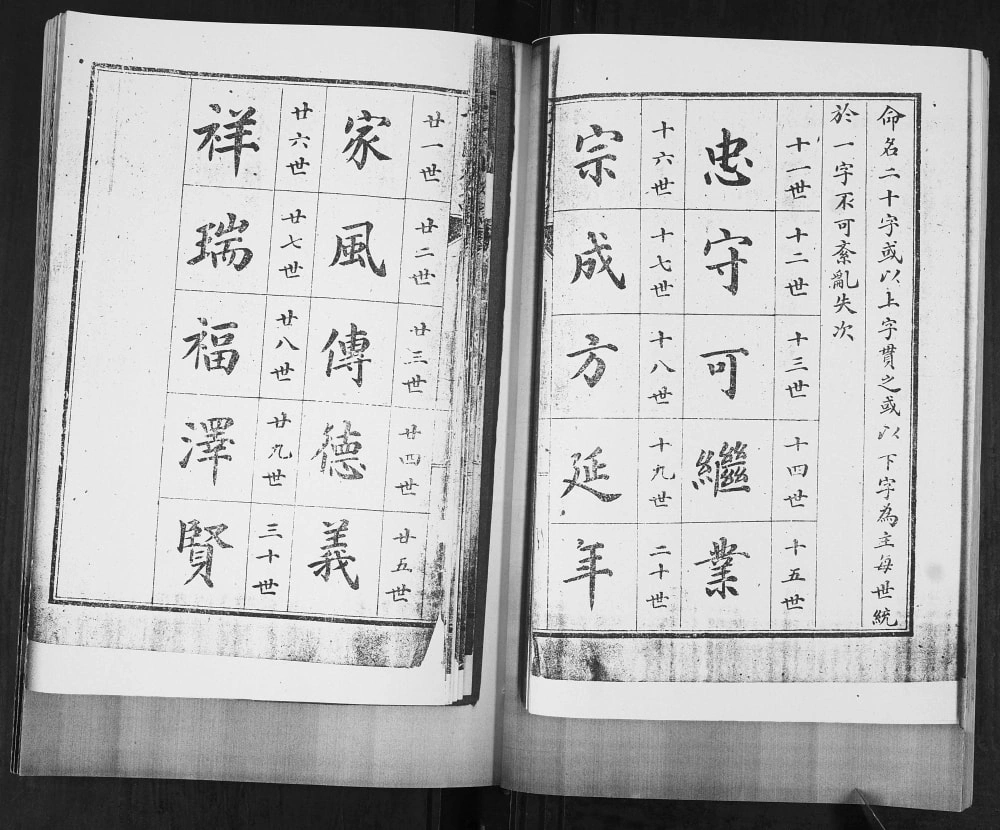 命名二十字或以上字貫之或以下字為主每世統
於一字不可紊亂失次
十一世 十二世 十三世 十四世 十五世
忠守可繼業
十六世 十七世 十八世 十九世 二十世
宗成方延年
廿一世 廿二世 廿三世 廿四世 廿五世
家風傳德義
廿六世 廿七世 廿八世 廿九世 三十世
祥瑞福澤賢